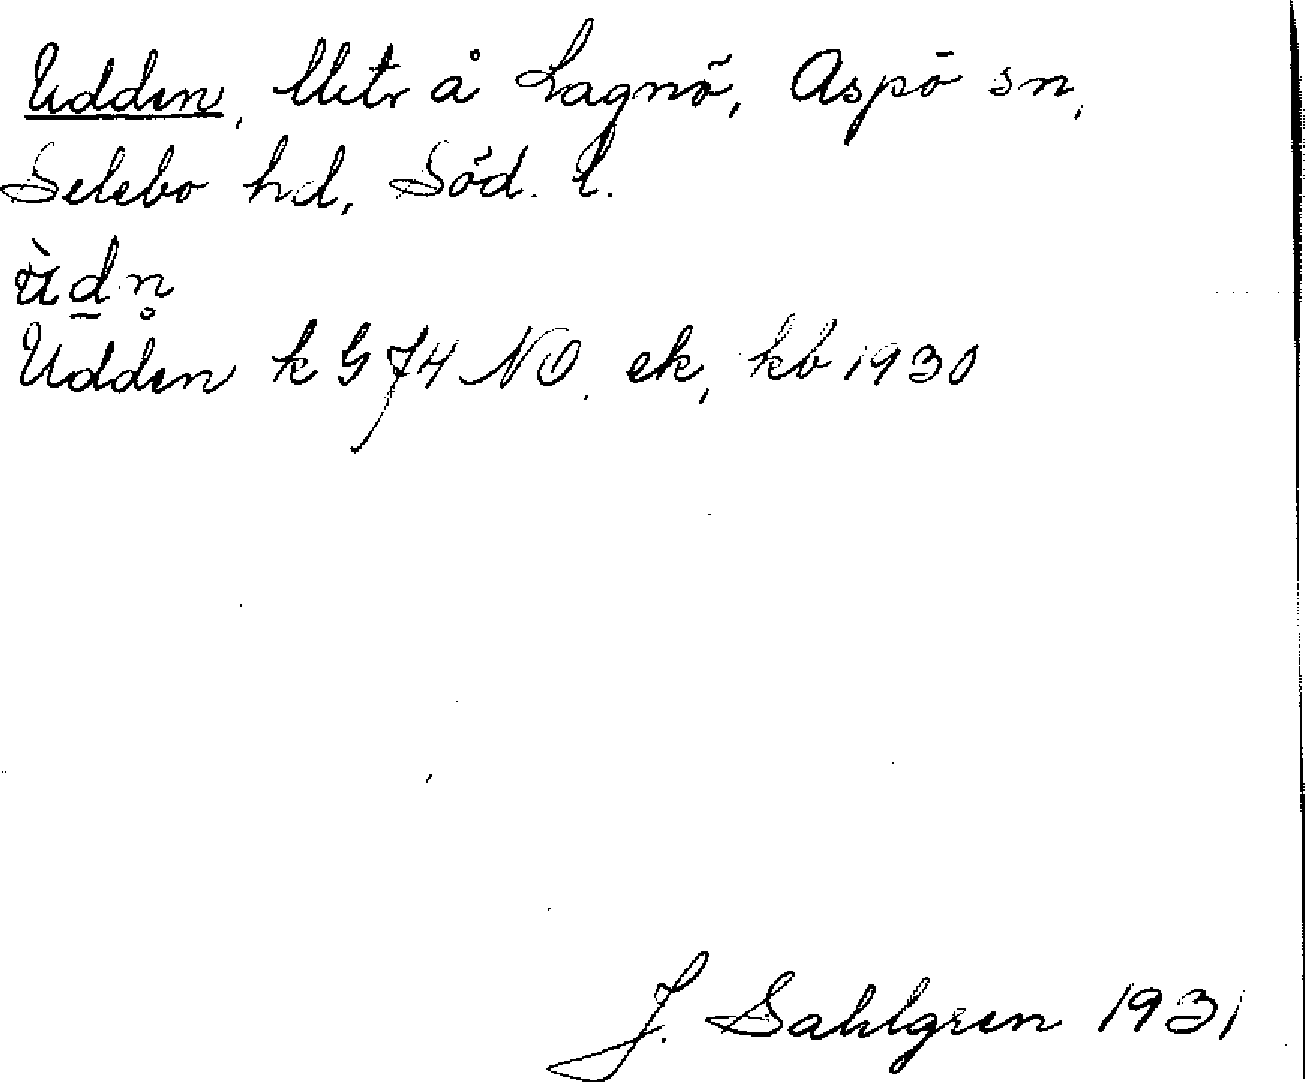 Udden, Utitr å Lagnö, Aspö sn,
Selebo hd, Söd. l.
ùdn̥
Udden k G 74 NO. ek, kb 1930
J. Sahlgren 1931